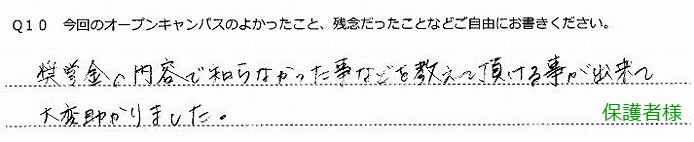 Q10 今回のオープンキャンパスのよかったこと、残念だったことなどご自由にお書きください。
奨学金の内容で知らなかった事などを教えて頂ける事が出来て
大変助かりました。
保護者様